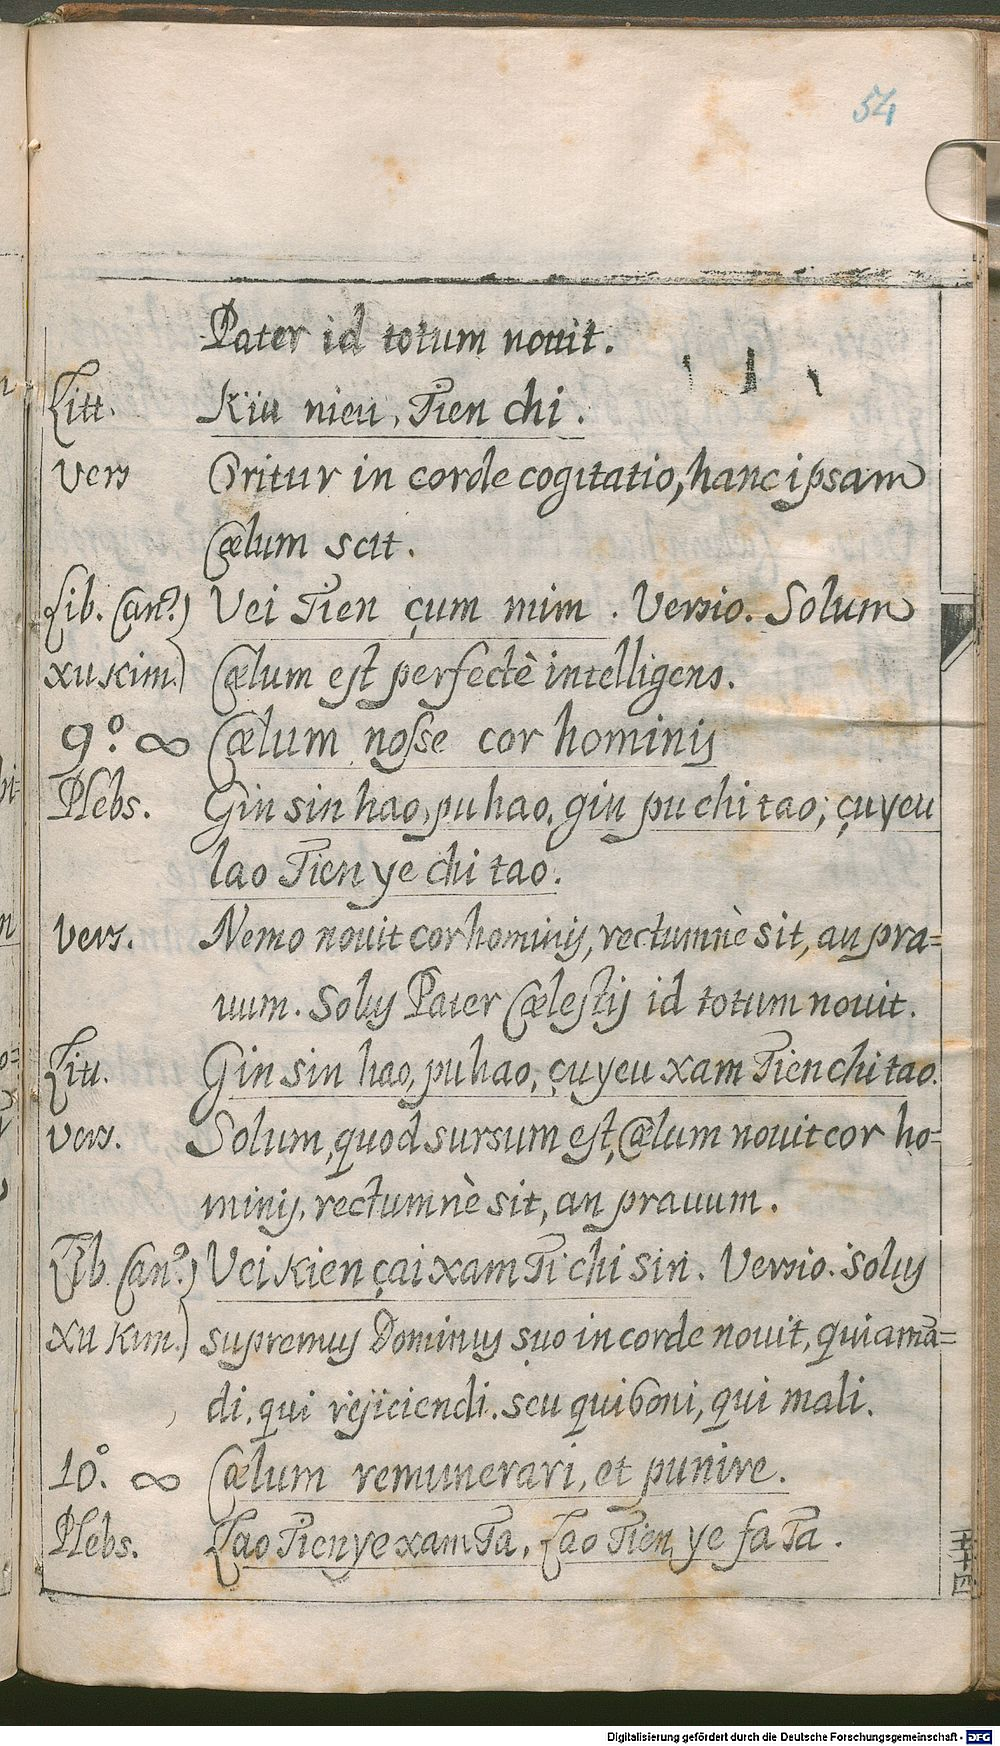 54
Pater id totum nouit.
Litt. Kiu nieu, Tien chi.
Vers Oritur in corde cogitatio, hanc ipsam
Cœlum scit.
Lib. Can?) Vei Tien çum mim. Versio. Solum
xu kim.) Cœlum est perfectè intelligens.
9.º ∞ Cœlum nosse cor hominis
Plebs. Gin sin hao, pu hao, gin pu chi tao; çu yeu
lao Tien ye chi tao.
Vers. Nemo nouit cor hominis, rectumnè sit, an pra=
uum. Solus Pater Cœlestis id totum nouit.
Litt. Gin sin hao, pu hao, çu yeu xam Tien chi tao.
Vers. Solum, quod sursum est, Cœlum nouit cor ho=
minis, rectumnè sit, an prauum.
Lib. Can?) Vei kien çai xam Ti chi sin. Versio. Solus
xu kim.) supremus Dominus suo in corde nouit, qui amā=
di, qui rejiciendi. seu qui boni, qui mali.
10.º ∞ Cœlum remunerari, et punire.
Plebs. Lao Tien ye xam Ta, Lao Tien ye fa Ta.
Digitalisierung gefördert durch die Deutsche Forschungsgemeinschaft - DFG